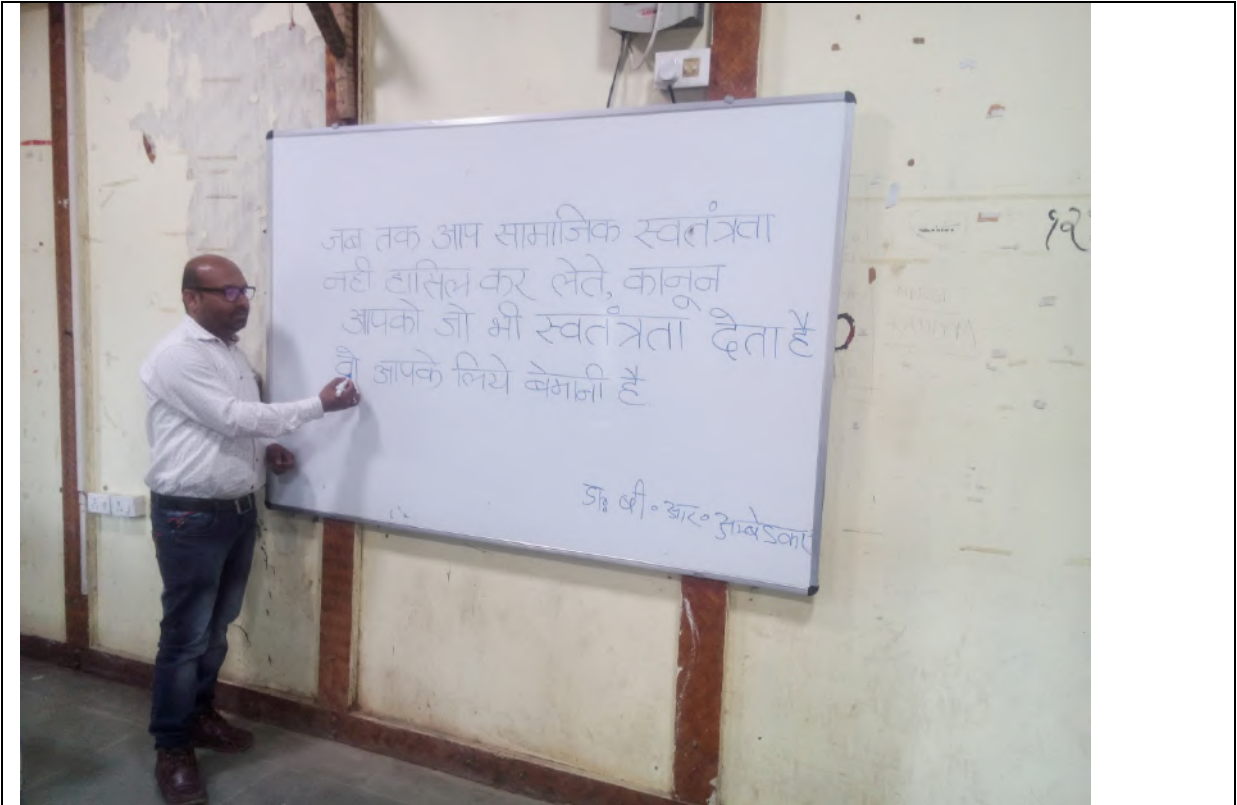 जब तक आप सामाजिक स्वतंत्रता
नही हासिल कर लेते, कानून
आपको जो भी स्वतंत्रता देता है
वो आपके लिये बेमानी है
डाः बी॰ आर॰ अम्बेडकर
१२